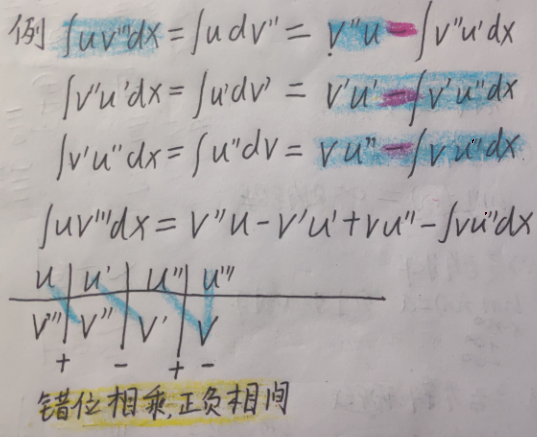 例 ∫uv'''dx = ∫udv'' = v''u - ∫v''u'dx
∫v''u'dx = ∫u'dv' = v'u' - ∫v'u''dx
∫v'u''dx = ∫u''dv = vu'' - ∫vu'''dx
∫uv'''dx = v''u - v'u' + vu'' - ∫vu'''dx
u u' u'' u'''
v''' v'' v' v
+ - + -
错位相乘,正负相间